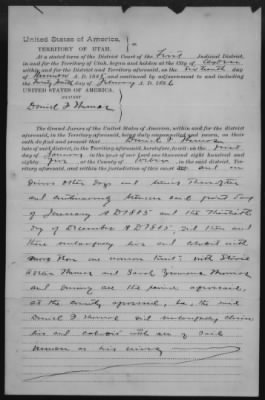 United States of America,
TERRITORY OF UTAH.
At a stated term of the District Court of the First Judicial District,
in and for the Territory of Utah, begun and holden at the City of Ogden
within and for the District and Territory aforesaid, on the day
of A. D. 188 and continued by adjournment to and including
the day of February A. D. 188
UNITED STATES OF AMERICA,
AGAINST
Daniel F Thomas
The Grand Jurors of the United States of America, within and for said district,
in the Territory aforesaid, being duly empanneled and sworn, on their
oath do find and present that Daniel F. Thomas
late of said district, in the Territory aforesaid, heretofore, to-wit: on the first
day of January in the year of our Lord one thousand eight hundred and
eighty five at the County of in the said district, Territory
aforesaid, and within the jurisdiction of this court and on
divers other days and times thereafter
and continuously between said first day
of January A D 1885 and the Thirtieth
day of December A D 1885, did then and
there unlawfully live and cohabit with
more than one woman to wit: with
Thomas and Sarah Thomas
and during all the period aforesaid,
at the county aforesaid, he, the said
Daniel F Thomas did unlawfully claim
live and cohabit with all of said
women as his wives